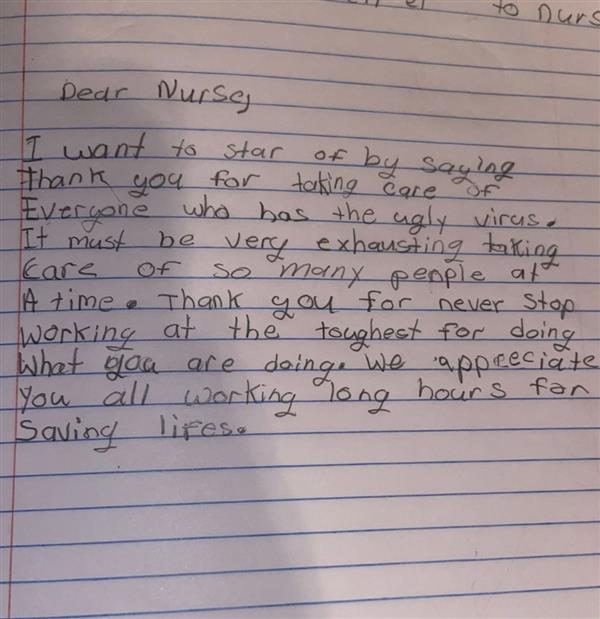 to nurs
Dear Nurse,
I want to star of by saying
Thank you for taking care of
Everyone who has the ugly virus.
It must be very exhausting taking
care of so many people at
A time. Thank you for never stop
working at the toughest for doing
What you are doing. We appreciate
you all working long hours for
Saving lifes.